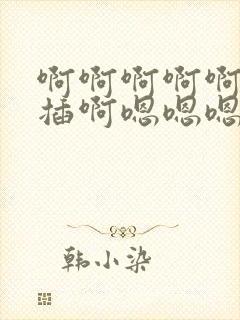 啊啊啊啊啊
插啊嗯嗯嗯
韩小染